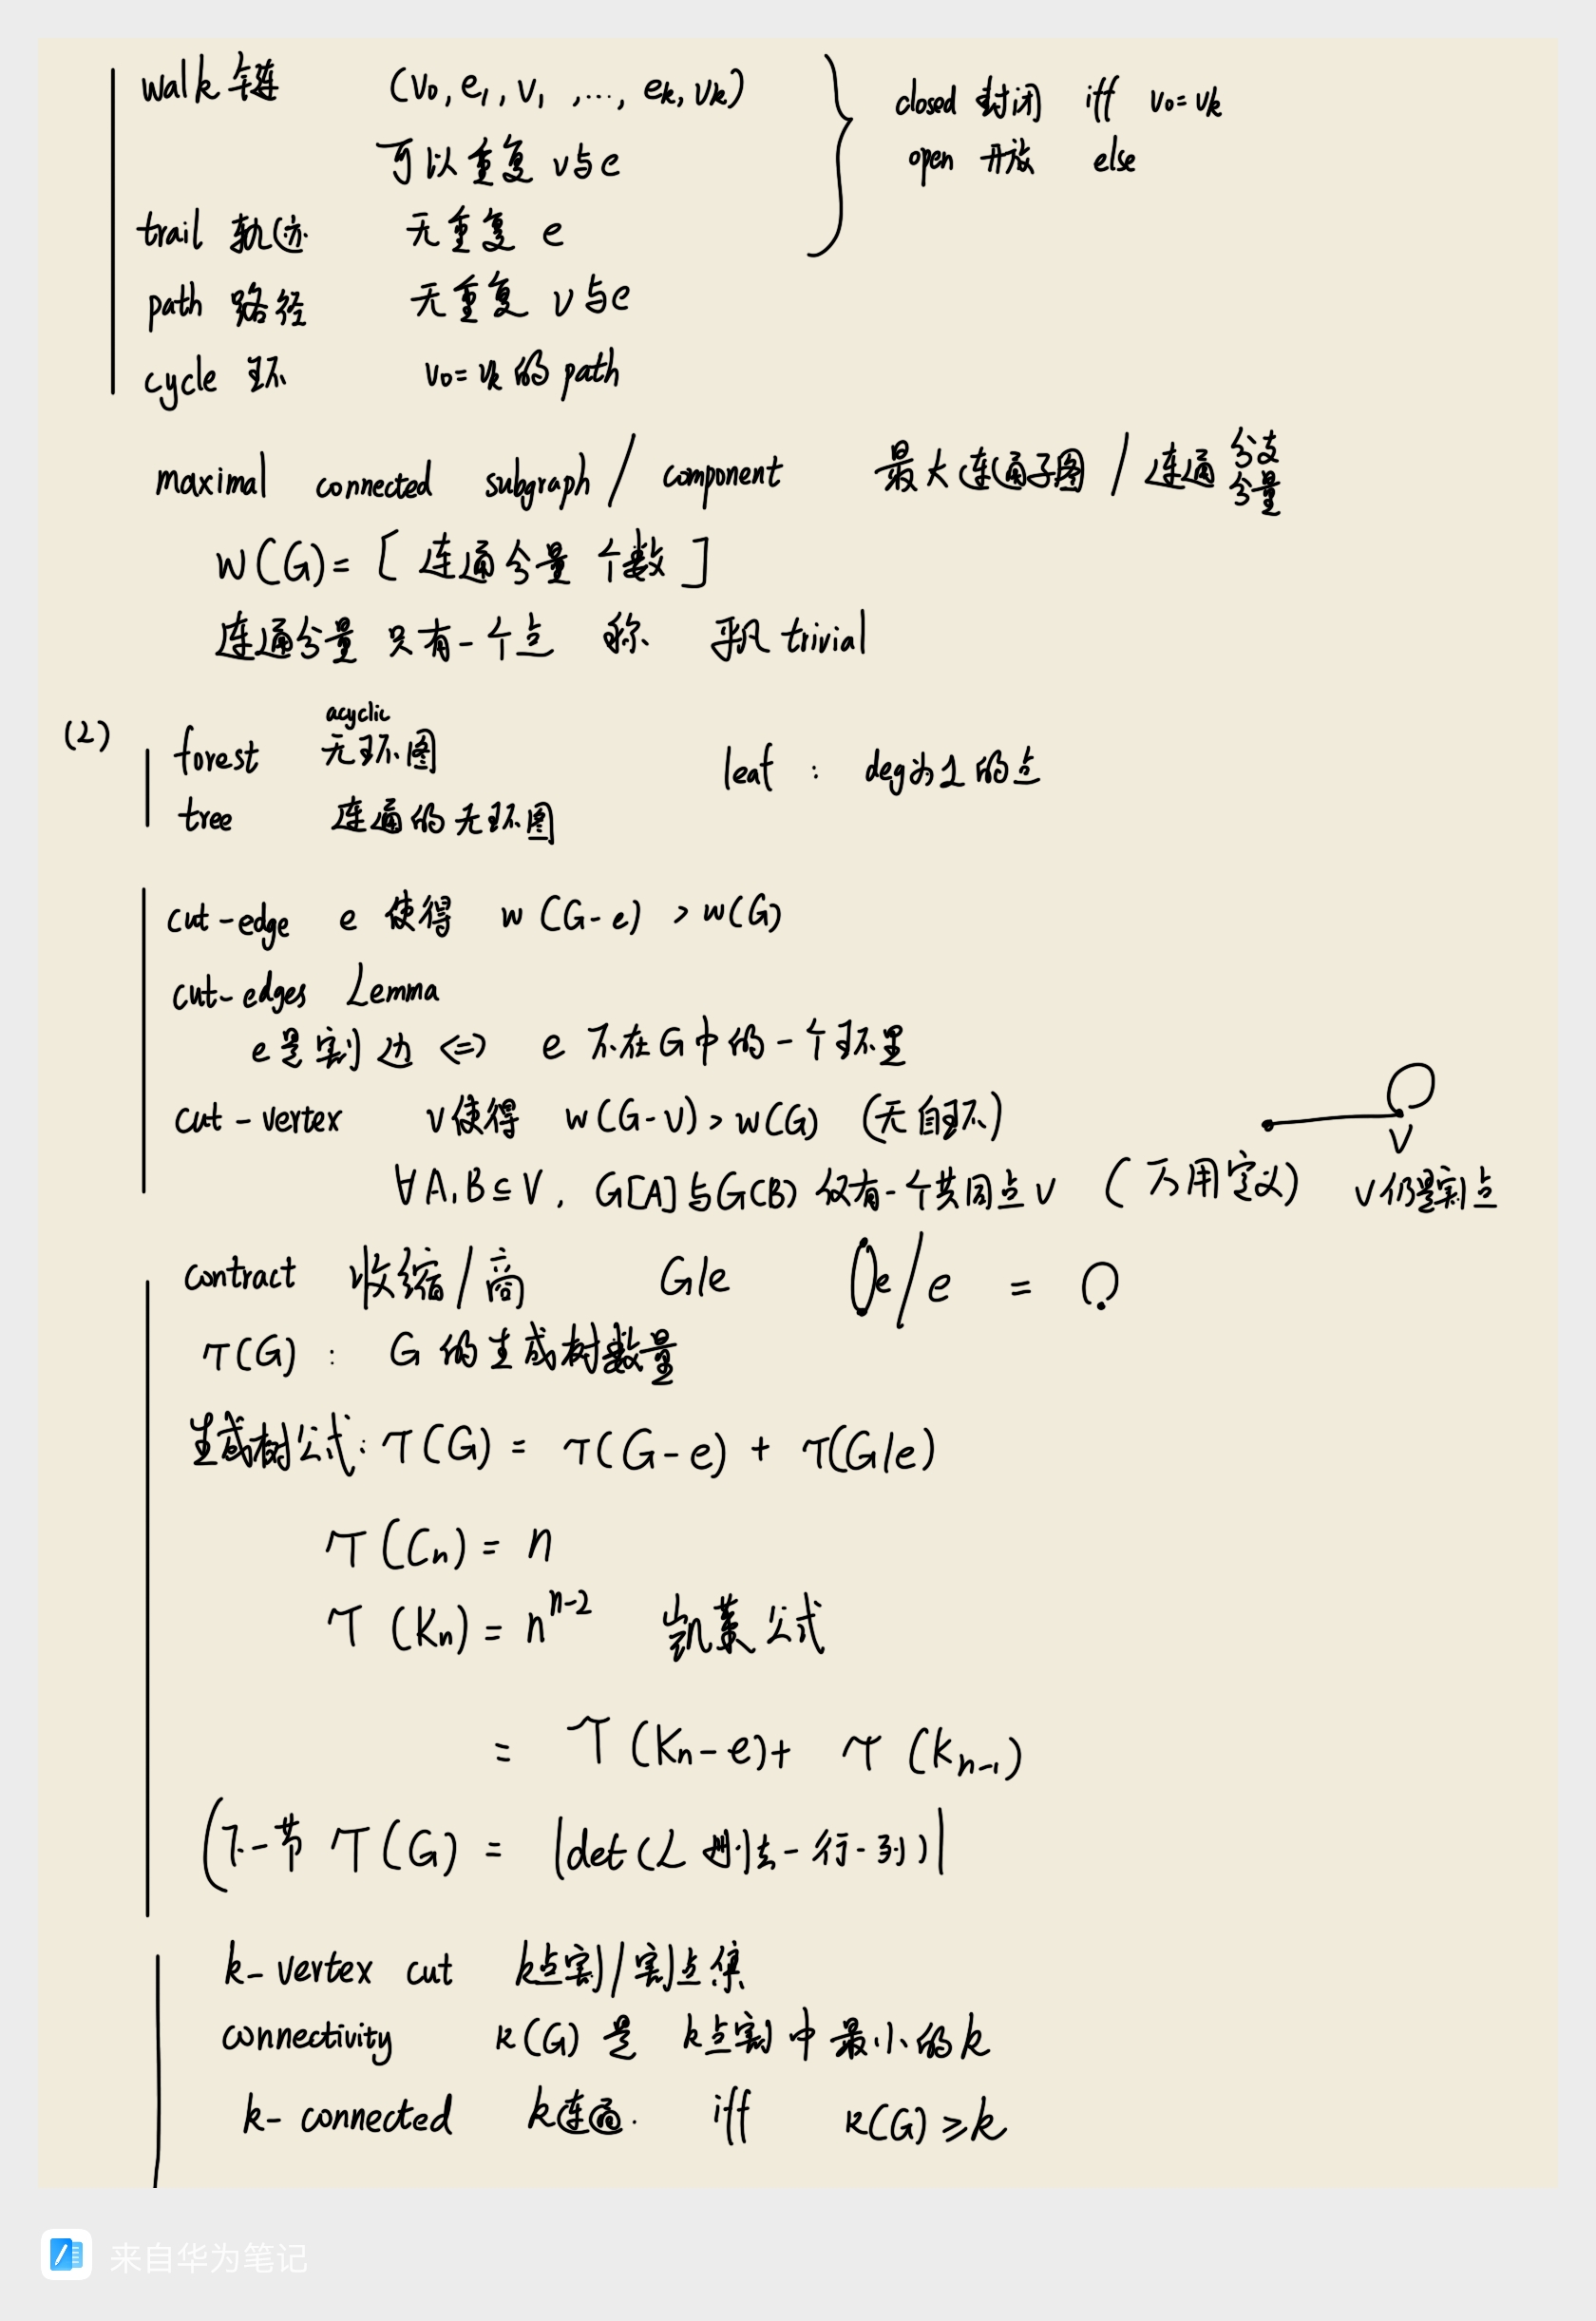 walk 链 (v₀, e₁, v₁, ..., eₖ, vₖ) closed 封闭 iff v₀=vₖ
可以重复 v与e open 开放 else
trail 轨迹 无重复 e
path 路径 无重复 v与e
cycle 环 v₀=vₖ 的 path
maximal connected subgraph / component 最大连通子图 / 连通 分支 分量
w(G)= [连通分量 个数]
连通分量 只有一个点 称 平凡 trivial
(2) forest acyclic 无环图 leaf : deg为1的点
tree 连通的无环图
cut-edge e 使得 w(G-e) > w(G)
cut-edges Lemma
e是割边 <=> e 不在G中的一个环里
cut-vertex v使得 w(G-v) > w(G) (无自环) v
∀A,B⊆V, G[A]与G(B) 仅有一个共同点v (万用定义) v仍是割点
contract 收缩/商 G/e e/e =
τ(G) : G 的生成树数量
生成树公式: τ(G) = τ(G-e) + τ(G/e)
τ(Cₙ) = n
τ(Kₙ) = nⁿ⁻² 凯莱公式
= τ(Kₙ-e) + τ(Kₙ₋₁)
(下一节 τ(G) = |det(L 划去一行一列)|
k-vertex cut k点割/割点集
connectivity κ(G) 是 k点割中最小的k
k-connected k连通. iff κ(G)≥k
来自华为笔记